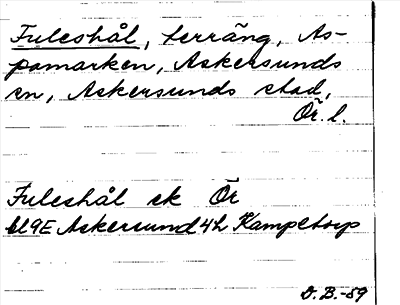 Fuleshål, terräng, As-
pamarken, Askersunds
sn, Askersunds stad,
Ör. l.
Fuleshål ek Ör
bl 9E Askersund 4h Kampetorp
D. B. -59